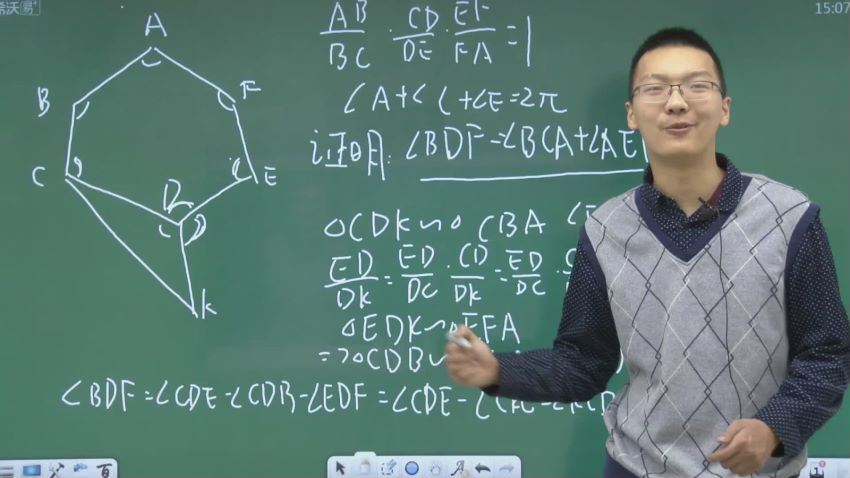 希沃易+
15:07
A
B
F
C
D
E
K
AB/BC · CD/DE · EF/FA = 1
∠A+∠C+∠E=2π
证明: ∠BDF=∠BCA+∠AE
△CDK∽△CBA
ED/DK = ED/DC · CD/DK = ED/DC ·
△EDK∽△EFA
=>△CDB∽
∠BDF=∠CDE-∠CDB-∠EDF=∠CDE-
百